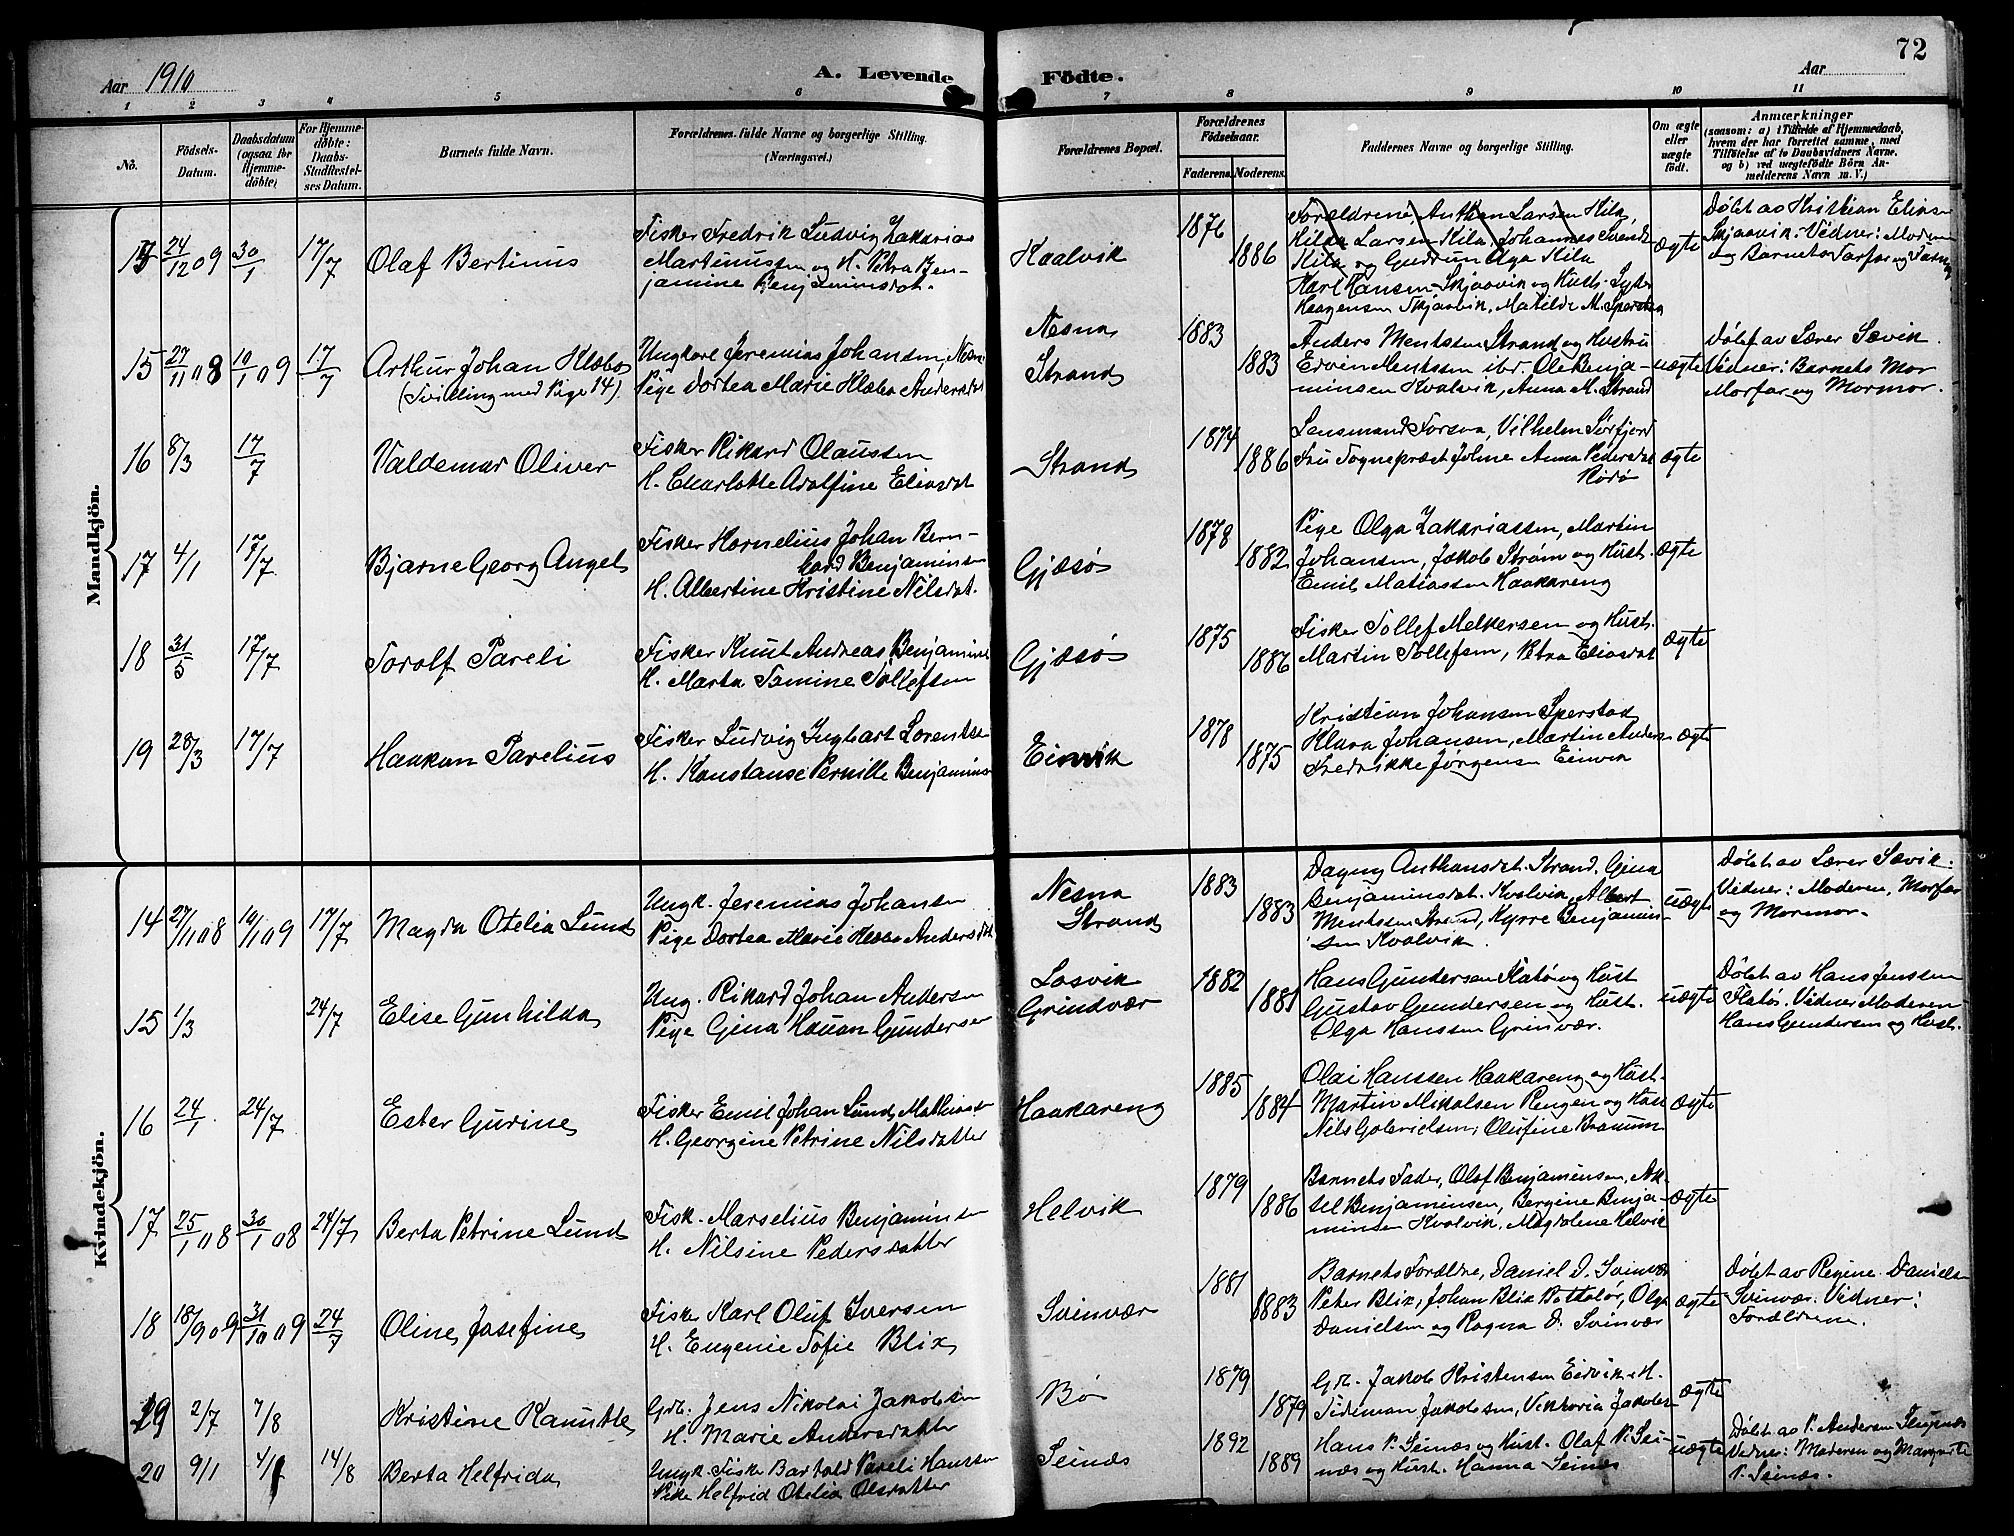 Aar 1910
A. Levende Födte.
Aar
72
1 2 3 4 5 6 7 8 9 10 11
No.
Födsels-
Datum.
Daabsdatum
(ogsaa for
Hjemme-
döbte)
For Hjemme-
döbte:
Daabs-
Stadfæstel-
ses Datum.
Barnets fulde Navn.
Forældrenes fulde Navne og borgerlige Stilling.
(Næringsvei.)
Forældrenes Bopæl.
Forældrenes
Födselsaar.
Faderens.
Moderens.
Faddernes Navne og borgerlige Stilling.
Om ægte
eller
uægte
födt.
Anmærkninger
(saasom: a) i Tilfælde af Hjemmedaab,
hvem der har forrettet samme, med
Tilföielse af to Daabsvidners Navne,
og b) ved uægtefödte Börn An-
melderens Navn m. V.)
Mandkjön.
24/12 09 30/1 17/7 Olaf Bertinus
Fisker Fredrik Ludvig Zakarias
Martinussen og H. Petra Ben-
jamine Benjaminsdat.
Kaalvik
1876
1886
Forældrene, Anthon Larsen Kila,
Hilda Larsen Kila, Johannes Svends
Kila og Gudrun Aga Kila
Karl Hansen Skjaavik og Hust.
Haagensen Skjaavik, Matilde M. Sperstad
ægte
Døbt av Kristian Elias
Skjaavik. Vidner: Moderen
og Barnets Farfar og Farmor
15 27/11 08 10/1 09 17/7 Arthur Johan Klæbo
(Tvilling med Pige 14).
Ungkarl Jeremias Johansen, Nesna
Pige Dortea Marie Klæbo Andersdat
Nesna
Strand
1883
1883
Anders Mentsen Strand og Hustru
Edvin Mentsen ibr. Ole Benja-
minsen Kvalvik, Anna M. Strand
uægte
Døbt av Lærer Sævik.
Vidner: Barnets Mor
Morfar og Mormor.
16 8/3 17/7 Valdemar Oliver
Fisker Rikard Olaussen
H. Charlotte Adolfine Eliasdat
Strand
1874
1886
Lensmand Forsva, Vilhelm Sørfjord
Fru Sogneprest Jølme Anna Pedersdat
Rødø
ægte
17 4/1 17/7 Bjarne Georg Angel
Fisker Kornelius Johan Bern-
hard Benjaminsen
H. Albertine Kristine Nilsdat.
Gjæsø
1878
1882
Pige Olga Zakariassen, Martin
Johansen, Jakob Strøm og Hust.
Emil Matiassen Haakareng
ægte
18 31/5 17/7 Torolf Pareli
Fisker Knut Andreas Benjamins
H. Marta Tomine Tollefsen
Gjæsø
1875
1886
Fisker Tollef Melkersen og Hust.
Martin Tollefsen, Petra Eliasdat
ægte
19 28/3 17/7 Haakon Parelius
Fisker Ludvig Inghart Lorentse
H. Konstanse Pernille Benjamins
Einvik
1878
1875
Kristian Johansen Sperstad
Klara Johansen, Martin Anders
Fredrikke Jørgensen Einvik
ægte
Kvindekjön.
14 27/11 08 10/1 09 17/7 Magda Otelia Lund
Ungk. Jeremias Johansen
Pige Dortea Marie Klæbo Andersdat
Nesna
Strand
1883
1883
Dagny Anthonsdat. Strand, Gina
Benjaminsdat. Kvalvik, Albert
Mentsen Strand, Kyrre Benjamin-
sen Kvalvik.
uægte
Døbt av Lærer Sævik.
Vidner: Moderen, Morfar
og Mormor.
15 1/3 24/7 Elise Gunhilda
Ung. Rikard Johan Andersen
Pige Gina Hauan Gundersen
Losvik
Grindvær
1882
1881
Hans Gundersen Flatø og Hust
Gustav Gundersen og Hust.
Olga Hanssen Grinvær.
uægte
Døbt av Hans Jenssen
Flatø. Vidner Moderen
Hans Gundersen og Hust.
16 24/1 24/7 Ester Gurine
Fisker Emil Johan Lund Mathiassen
H. Georgine Petrine Nilsdatter
Haakareng
1885
1884
Olai Hanssen Haakareng og Hust.
Martin Mikalsen Rengen og Hust
Nils Gabrielsen, Olufine
ægte
17 25/1 08 30/1 08 24/7 Berta Petrine Lund
Fisk. Marselius Benjaminsen
H. Nilsine Pedersdatter
Helvik
1879
1886
Barnets Fader, Olaf Benjaminsen, Ak-
sel Benjaminsen, Bergine Benja-
minsen Kvalvik, Magdalene Helvik
ægte
18 18/9 09 31/10 09 24/7 Oline Josefine
Fisker Karl Oluf Iversen
H. Eugenie Sofie Blix
Svinvær
1881
1883
Barnets Foreldre, Daniel D. Svinvær
Peter Blix, Johan Blix, Olga
Danielsen og Ragna D. Svinvær
ægte
Døbt av Regine Daniels
Svinvær. Vidner:
Foreldrene.
19 2/7 7/8 Kristine Kamitte
Grb. Jens Nikolai Jakobsen
H. Marie Andersdatter
Bø
1879
1879
Grb. Jakob Kristensen Eidvik, H.
Tideman Jakobsen, Viktoria Jakobs
ægte
20 9/1 14/8 Berta Helfrida
Ungk. Fisker Barthold Pareli Hansen
Pike Helfrid Otelia Olsdatter
Seinæs
1892
1889
Hans P. Seinæs og Hust. Olaf P. Sei-
næs og Hust. Hanna Seinæs
uægte
Døbt av P. Andersen
Vidner: Moderen og Margrete
P. Seinæs.